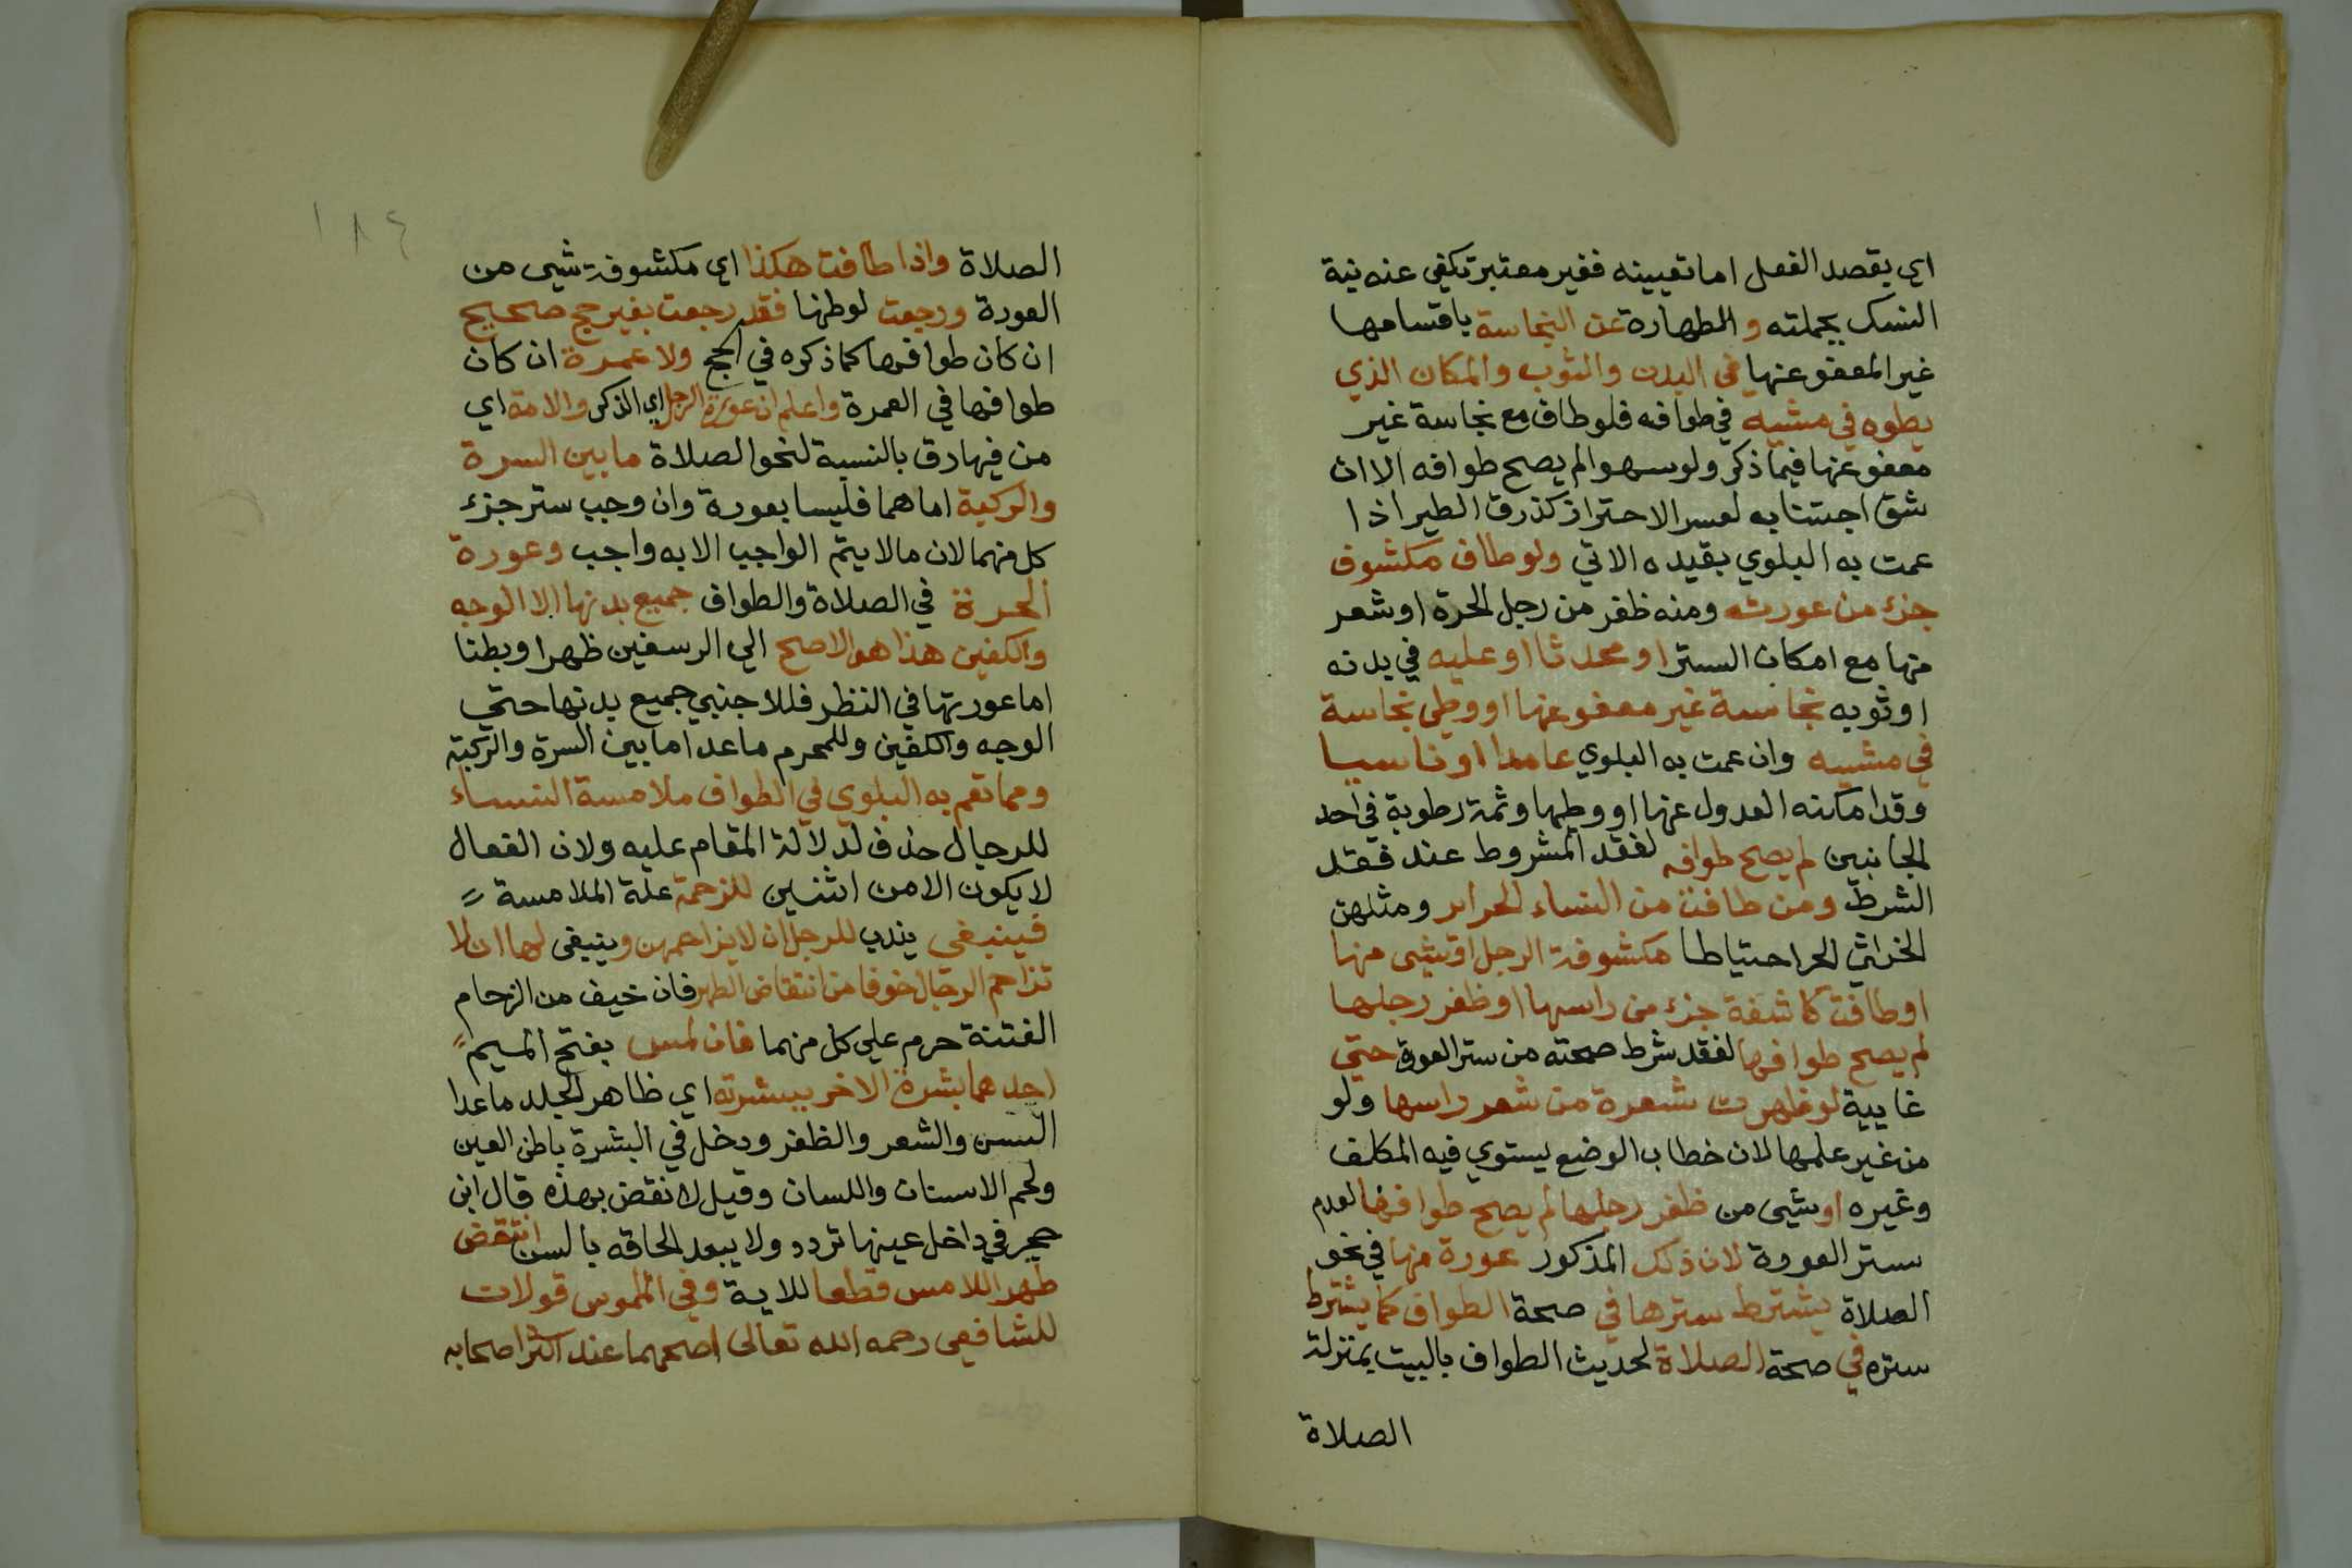 اي يقصد الفعل اما تعيينه فغير معتبر تكفي عنه نية
النسك بجملته و الطهارة عن النجاسة باقسامها
غير المعفو عنها في البدن والثوب والمكان الذي
يطوه في مشيه في طوافه فلو طاف مع نجاسة غير
معفو عنها فيما ذكر ولو سهوا لم يصح طوافه الا ان
شق اجتنابه لعسر الاحتراز كذرق الطير اذا
عمت به البلوي بقيده الاتي ولو طاف مكشوف
جزء من عورته ومنه ظفر من رجل الحرة او شعر
منها مع امكان الستر او محدثا او عليه في بدنه
او ثوبه نجاسة غير معفو عنها او وطي نجاسة
في مشيه وان عمت به البلوي عامدا او ناسيا
وقد امكنه العدول عنها او وطها وثمة رطوبة في احد
الجانبين لم يصح طوافه لفقد المشروط عند فقد
الشرط ومن طافت من النساء الحراير ومثلهن
الخراثي الحر احتياطا مكشوفة الرجل او شي منها
او طافت كاشفة جزء من راسها او ظفر رجلها
لم يصح طوافها لفقد شرط صحته من ستر العورة حتي
غايية لو ظهرت شعرة من شعر راسها ولو
من غير علمها لان خطاب الوضع يستوي فيه المكلف
وغيره او شي من ظفر رجلها لم يصح طوافها لعدم
ستر العورة لان ذلك المذكور عورة منها في نحو
الصلاة يشترط سترها في صحة الطواف كما يشترط
ستره في صحة الصلاة لحديث الطواف بالبيت بمنزلة
الصلاة
١٨٤
الصلاة واذا طافت هكذا اي مكشوفة شي من
العورة ورجعت لوطنها فقد رجعت بغير حج صحيح
ان كان طوافها كما ذكره في الحج ولا عمرة ان كان
طوافها في العمرة واعلم ان عورة الرجل اي الذكر والامة اي
من فيها رق بالنسبة لنحو الصلاة ما بين السرة
والركبة اما هما فليسا بعورة وان وجب ستر جزء
كل منهما لان ما لا يتم الواجب الا به واجب وعورة
الحرة في الصلاة والطواف جميع بدنها الا الوجه
والكفين هذا هو الاصح الي الرسغين ظهرا وبطنا
اما عورتها في النظر فللاجنبي جميع بدنها حتي
الوجه والكفين وللمحرم ما عدا ما بين السرة والركبة
ومما تعم به البلوي في الطواف ملامسة النساء
للرجال حذف لدلالة المقام عليه ولان الفعال
لا يكون الا من اثنين للزحمة علة الملامسة
فينبغي يندب للرجل ان لا يزاحمهن وينبغي لها ان لا
تزاحم الرجال خوفا من انتقاض الطهر فان خيف من الزحام
الفتنة حرم علي كل منهما فان لمس بفتح الميم
احدهما بشرة الاخر ببشرته اي ظاهر الجلد ما عدا
السن والشعر والظفر ودخل في البشرة باطن العين
ولحم الاسنان واللسان وقيل لا نقض بهذه قال ابن
حجر في داخل عينها تردد ولا يبعد الحاقه بالسن انتقض
طهر اللامس قطعا للاية وفي الملموس قولان
للشافعي رحمه الله تعالى اصحهما عند اكثر اصحابه